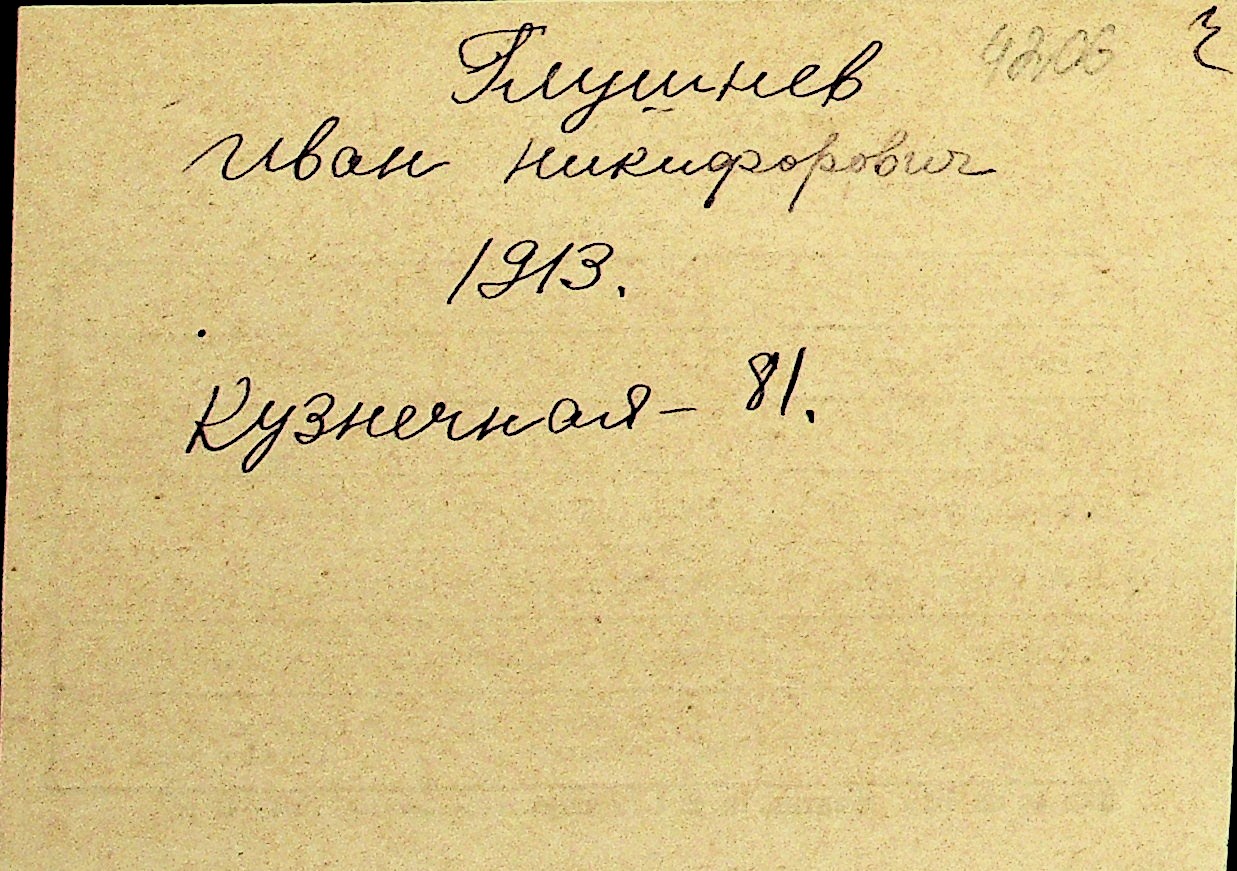 Глушнев 4206
Иван Никифорович
1913.
Кузнечная – 81.